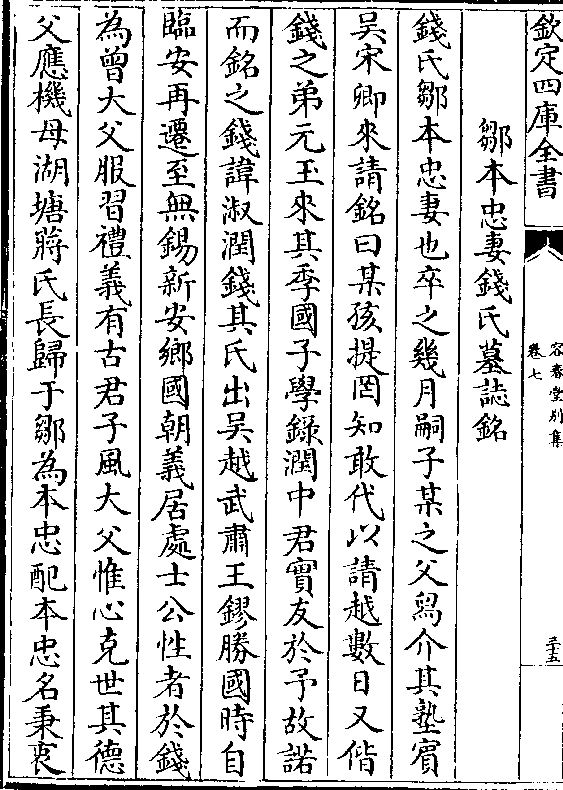 欽定四庫全書
容春堂別集
卷七
三十五
鄒本忠妻錢氏墓誌銘
錢氏鄒本忠妻也卒之幾月嗣子某之父爲介其塾賓
吳宋卿來請銘曰某孩提罔知敢代以請越數日又偕
錢之弟元玉來其季國子學錄潤中君實友於予故諾
而銘之錢諱淑潤錢其氏出吳越武肅王鏐勝國時自
臨安再遷至無錫新安鄉國朝義居處士公性者於錢
為曾大父服習禮義有古君子風大父惟心克世其德
父應機母湖塘蔣氏長歸于鄒為本忠配本忠名秉衷